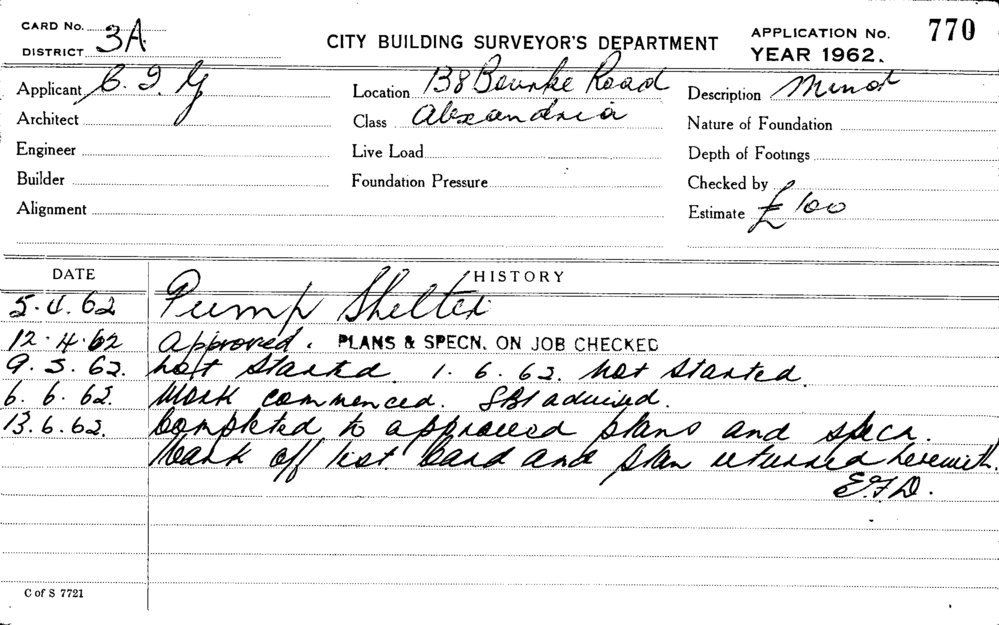 CARD No.
DISTRICT 3A
CITY BUILDING SURVEYOR'S DEPARTMENT
APPLICATION No. 770
YEAR 1962.
Applicant C. I. G
Location 138 Bourke Road
Description Minor
Architect
Class Alexandria
Nature of Foundation
Engineer
Live Load
Depth of Footings
Builder
Foundation Pressure
Checked by
Alignment
Estimate £100
DATE HISTORY
5.4.62 Pump Shelter
12.4.62 Approved. PLANS & SPECN. ON JOB CHECKED
9.5.62. Not Started. 1.6.62. Not Started.
6.6.62. Work commenced. SBI advised.
13.6.62. Completed to approved plans and specn.
Mark off list Card and plan returned herewith.
E.F.D.
C of S 7721